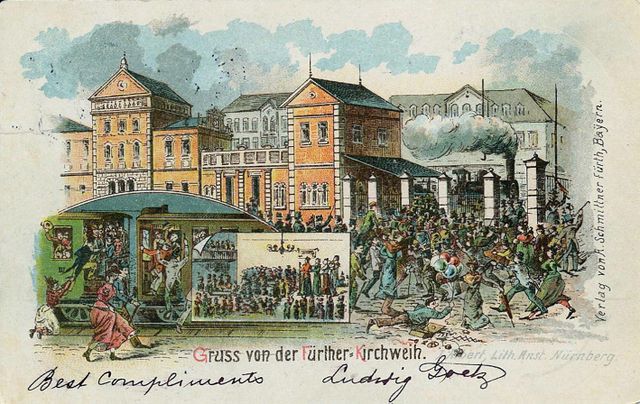 Gruss von der Fürther-Kirchweih.
Best Compliments Ludwig Goetz
Verlag von A. Schmittner Fürth, Bayern.
Lith. Anst. Nürnberg.